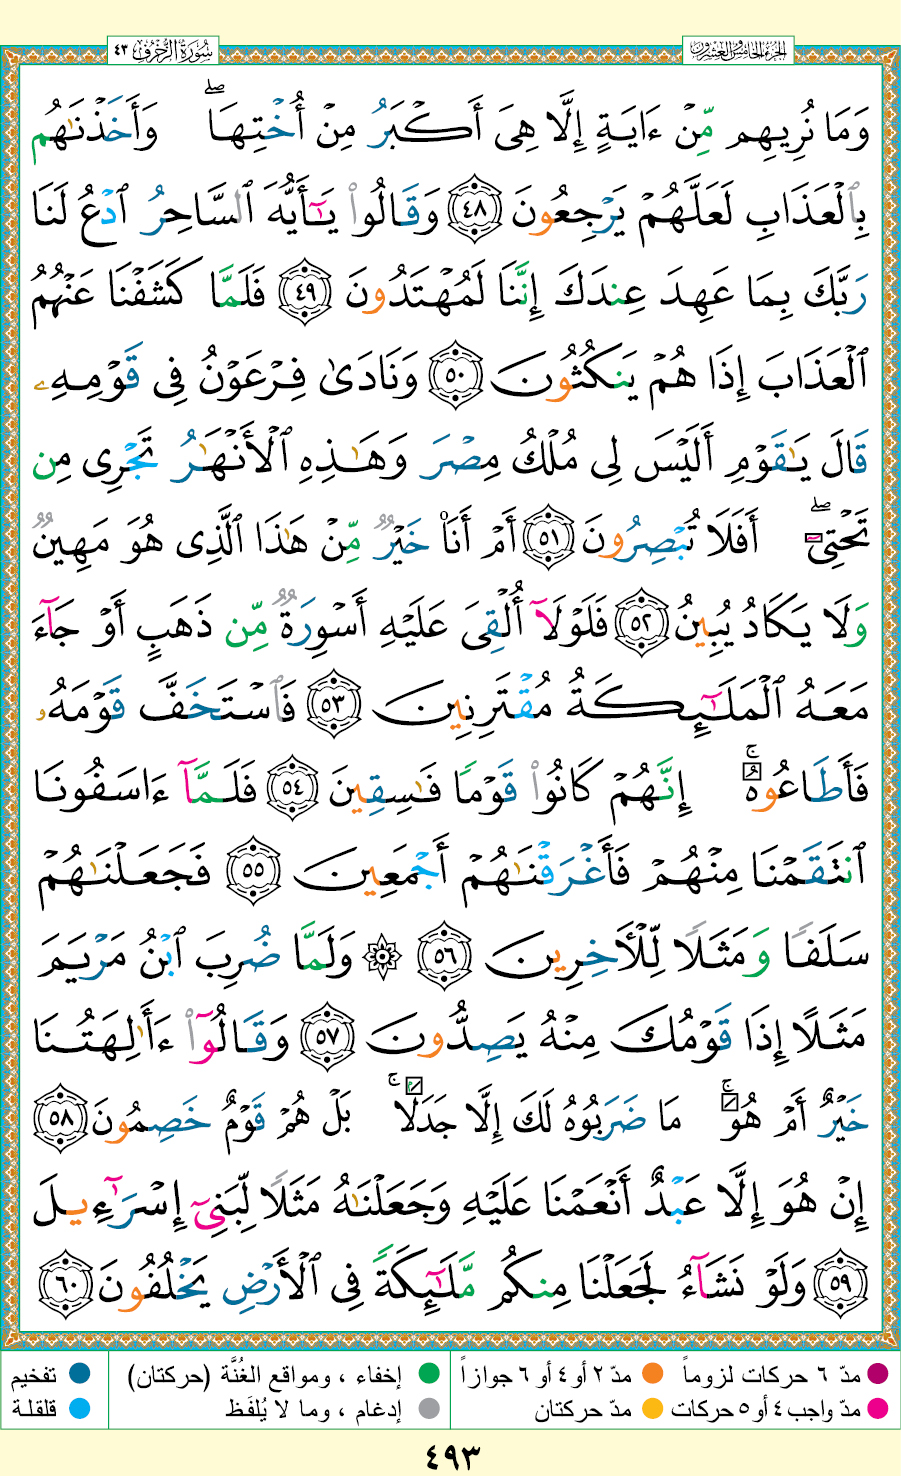 سُورَةُ الزُّخْرُفِ ٤٣
الجُزْءُ الخَامِسُ وَالعِشْرُونَ
وَمَا نُرِيهِم مِّنْ ءَايَةٍ إِلَّا هِىَ أَكْبَرُ مِنْ أُخْتِهَا ۖ وَأَخَذْنَٰهُم
بِٱلْعَذَابِ لَعَلَّهُمْ يَرْجِعُونَ ٤٨ وَقَالُوا۟ يَٰٓأَيُّهَ ٱلسَّاحِرُ ٱدْعُ لَنَا
رَبَّكَ بِمَا عَهِدَ عِندَكَ إِنَّنَا لَمُهْتَدُونَ ٤٩ فَلَمَّا كَشَفْنَا عَنْهُمُ
ٱلْعَذَابَ إِذَا هُمْ يَنكُثُونَ ٥٠ وَنَادَىٰ فِرْعَوْنُ فِى قَوْمِهِۦ
قَالَ يَٰقَوْمِ أَلَيْسَ لِى مُلْكُ مِصْرَ وَهَٰذِهِ ٱلْأَنْهَٰرُ تَجْرِى مِن
تَحْتِىٓ ۖ أَفَلَا تُبْصِرُونَ ٥١ أَمْ أَنَا۠ خَيْرٌ مِّنْ هَٰذَا ٱلَّذِى هُوَ مَهِينٌ
وَلَا يَكَادُ يُبِينُ ٥٢ فَلَوْلَآ أُلْقِىَ عَلَيْهِ أَسْوِرَةٌ مِّن ذَهَبٍ أَوْ جَآءَ
مَعَهُ ٱلْمَلَٰٓئِكَةُ مُقْتَرِنِينَ ٥٣ فَٱسْتَخَفَّ قَوْمَهُۥ
فَأَطَاعُوهُ ۚ إِنَّهُمْ كَانُوا۟ قَوْمًا فَٰسِقِينَ ٥٤ فَلَمَّآ ءَاسَفُونَا
ٱنتَقَمْنَا مِنْهُمْ فَأَغْرَقْنَٰهُمْ أَجْمَعِينَ ٥٥ فَجَعَلْنَٰهُمْ
سَلَفًا وَمَثَلًا لِّلْءَاخِرِينَ ٥٦ ۞ وَلَمَّا ضُرِبَ ٱبْنُ مَرْيَمَ
مَثَلًا إِذَا قَوْمُكَ مِنْهُ يَصِدُّونَ ٥٧ وَقَالُوٓا۟ ءَأَٰلِهَتُنَا
خَيْرٌ أَمْ هُوَ ۚ مَا ضَرَبُوهُ لَكَ إِلَّا جَدَلًۢا ۚ بَلْ هُمْ قَوْمٌ خَصِمُونَ ٥٨
إِنْ هُوَ إِلَّا عَبْدٌ أَنْعَمْنَا عَلَيْهِ وَجَعَلْنَٰهُ مَثَلًا لِّبَنِىٓ إِسْرَٰٓءِيلَ
٥٩ وَلَوْ نَشَآءُ لَجَعَلْنَا مِنكُم مَّلَٰٓئِكَةً فِى ٱلْأَرْضِ يَخْلُفُونَ ٦٠
مدّ ٦ حركات لزوماً مدّ ٢ أو ٤ أو ٦ جوازاً إخفاء ، ومواقع الغُنَّة (حركتان) تفخيم
مدّ واجب ٤ أو ٥ حركات مدّ حركتان إدغام ، وما لا يُلفَظ قلقلة
٤٩٣